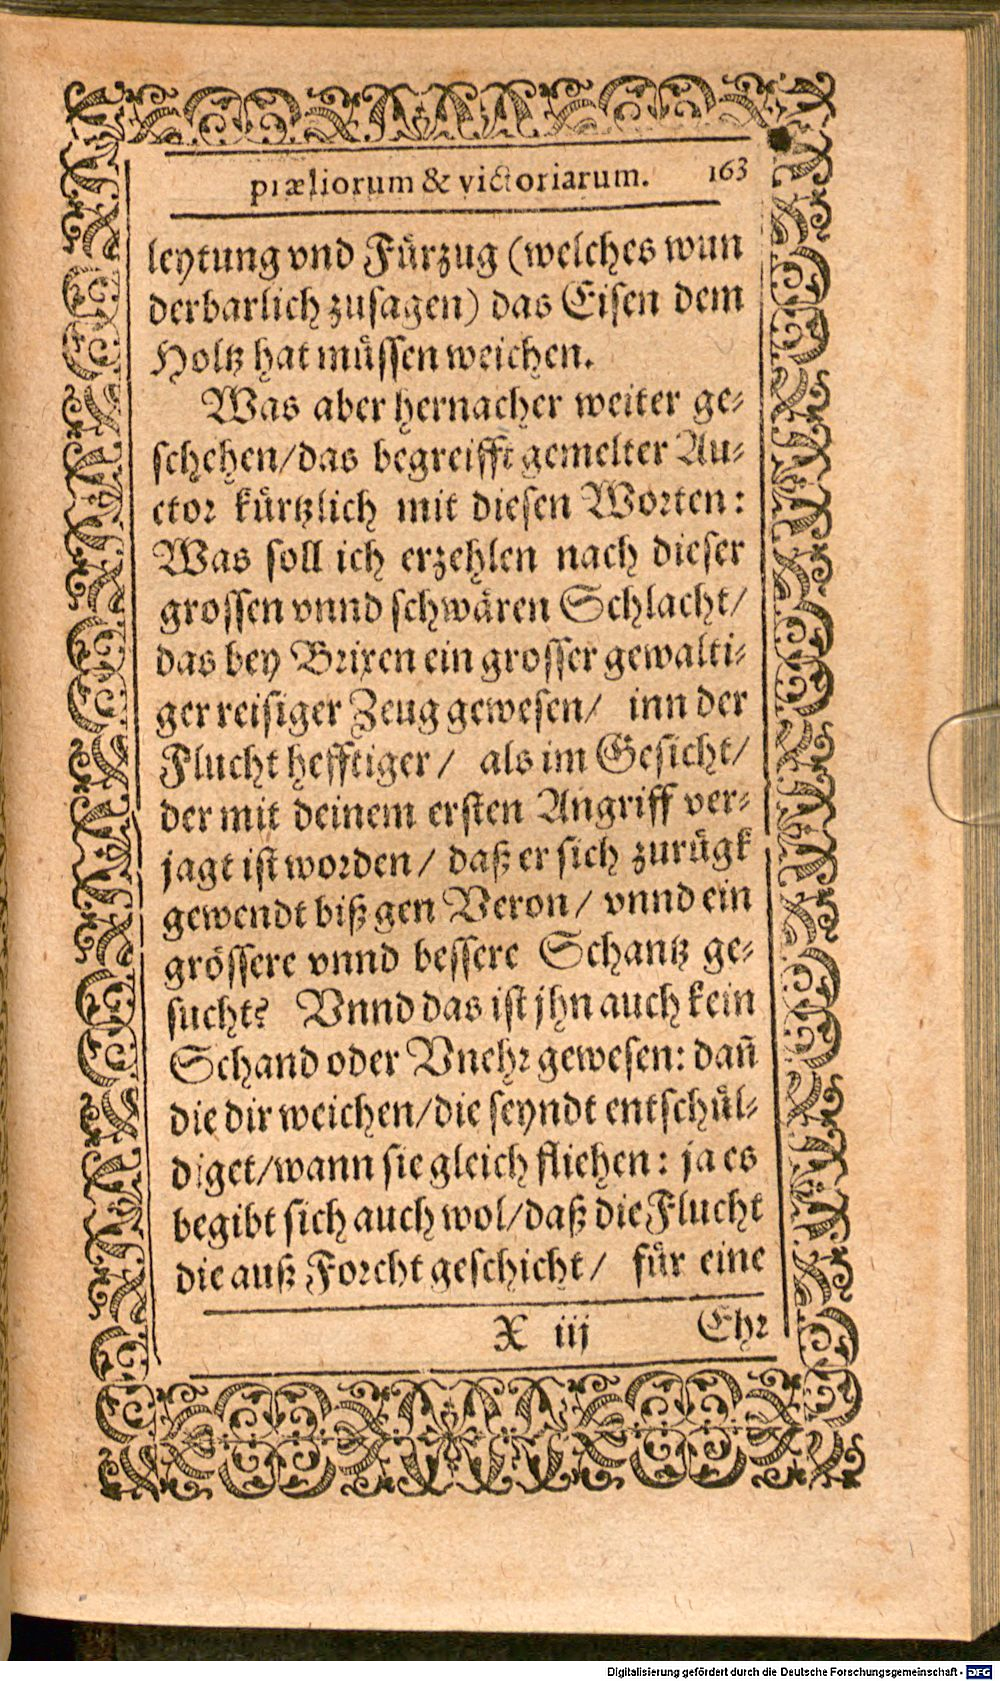 præliorum & victoriarum. 163
leytung vnd Fürzug (welches wun
derbarlich zusagen) das Eisen dem
Holtz hat müssen weichen.
Was aber hernacher weiter ge-
schehen/das begreifft gemelter Au-
ctor kürtzlich mit diesen Worten:
Was soll ich erzehlen nach dieser
grossen vnnd schwären Schlacht/
das bey Brixen ein grosser gewalti-
ger reisiger Zeug gewesen/ inn der
Flucht hefftiger/ als im Gesicht/
der mit deinem ersten Angriff ver-
jagt ist worden/ daß er sich zurügk
gewendt biß gen Veron/ vnnd ein
grössere vnnd bessere Schantz ge-
sucht? Vnnd das ist jhn auch kein
Schand oder Vnehr gewesen: dañ
die dir weichen/die seyndt entschül-
diget/wann sie gleich fliehen: ja es
begibt sich auch wol/daß die Flucht
die auß Forcht geschicht/ für eine
X iij Ehr
Digitalisierung gefördert durch die Deutsche Forschungsgemeinschaft - DFG